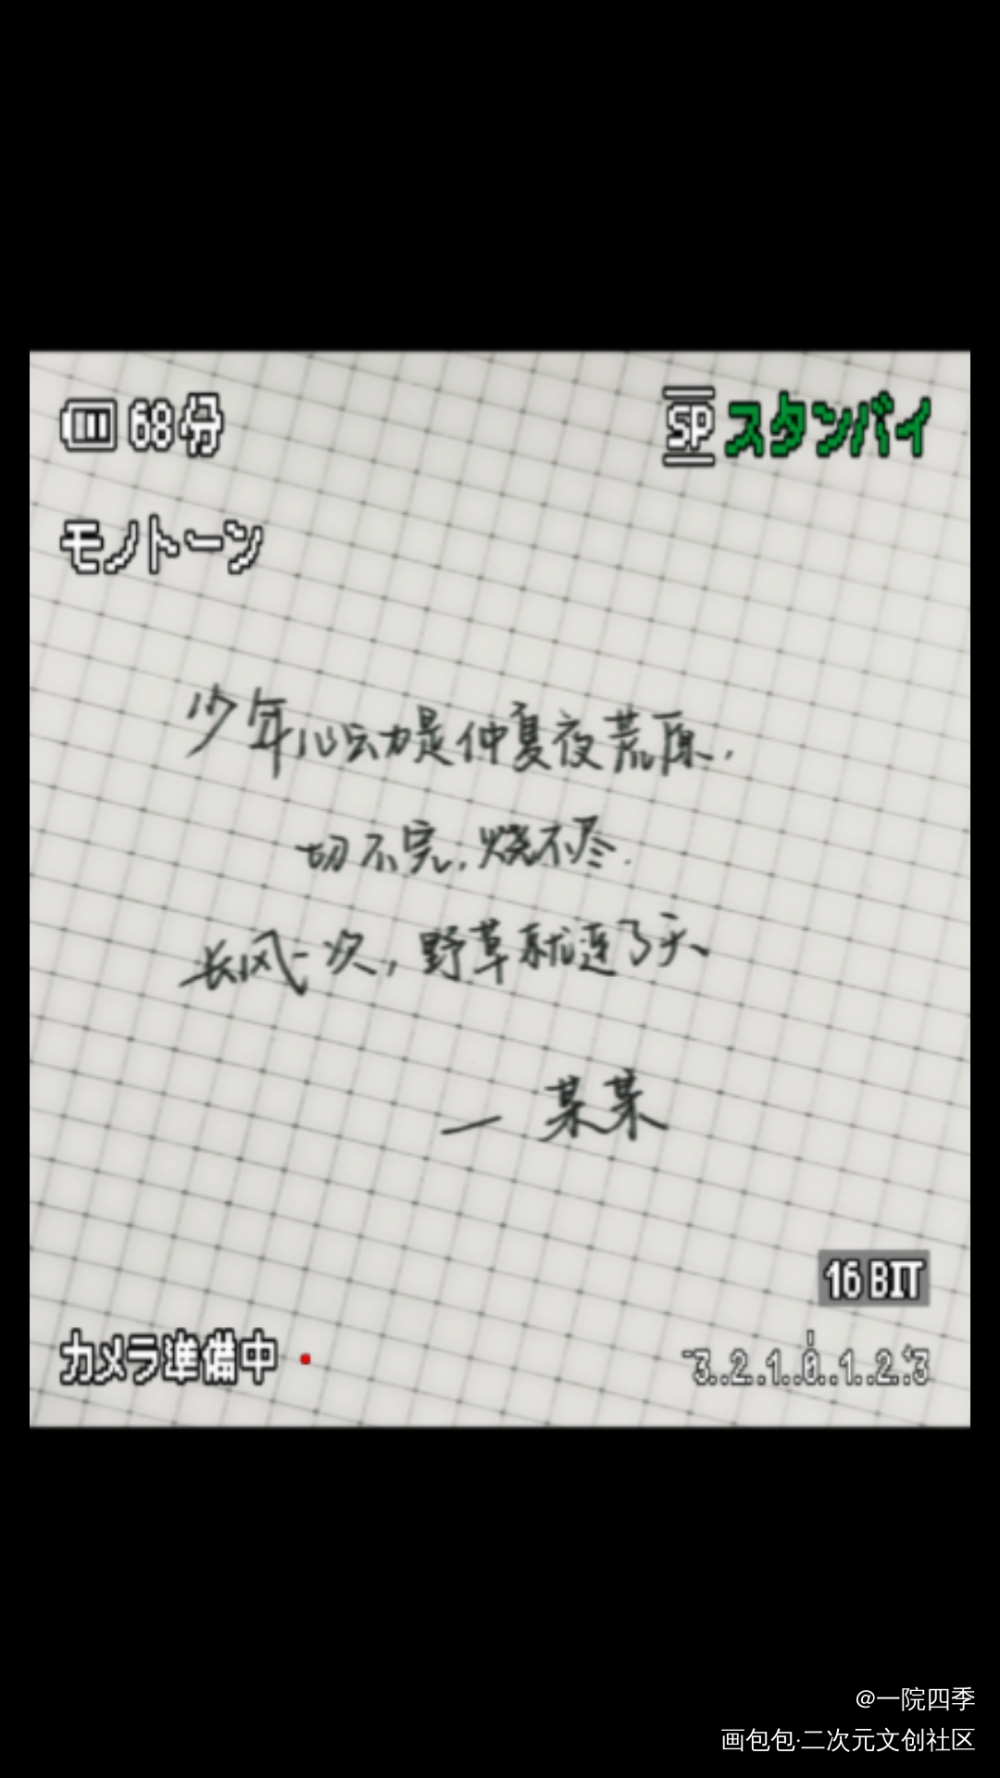 68分
SP スタンバイ
モノトーン
少年心动是仲夏夜荒原.
切不完.烧不尽.
长风一次,野草就连了天
— 某某
16 BIT
カメラ準備中
-3..2..1..0..1..2..+3
@一院四季
画包包·二次元文创社区